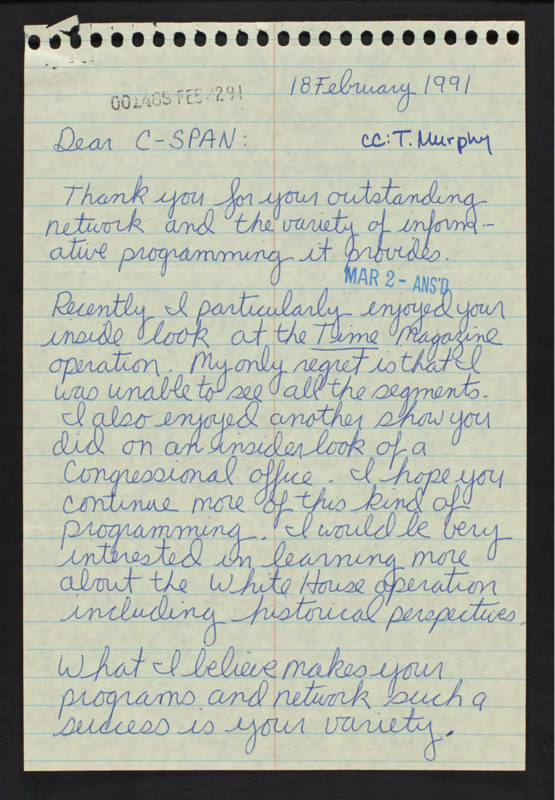 18 February 1991
001485 FEB 22 91
Dear C-SPAN:
cc: T. Murphy
Thank you for your outstanding
network and the variety of inform-
ative programming it provides.
MAR 2 - ANS'D
Recently I particularly enjoyed your
inside look at the Time Magazine
operation. My only regret is that I
was unable to see all the segments.
I also enjoyed another show you
did on an insider look of a
Congressional office. I hope you
continue more of this kind of
programming. I would be very
interested in learning more
about the White House operation
including historical perspectives.
What I believe makes your
programs and network such a
success is your variety.